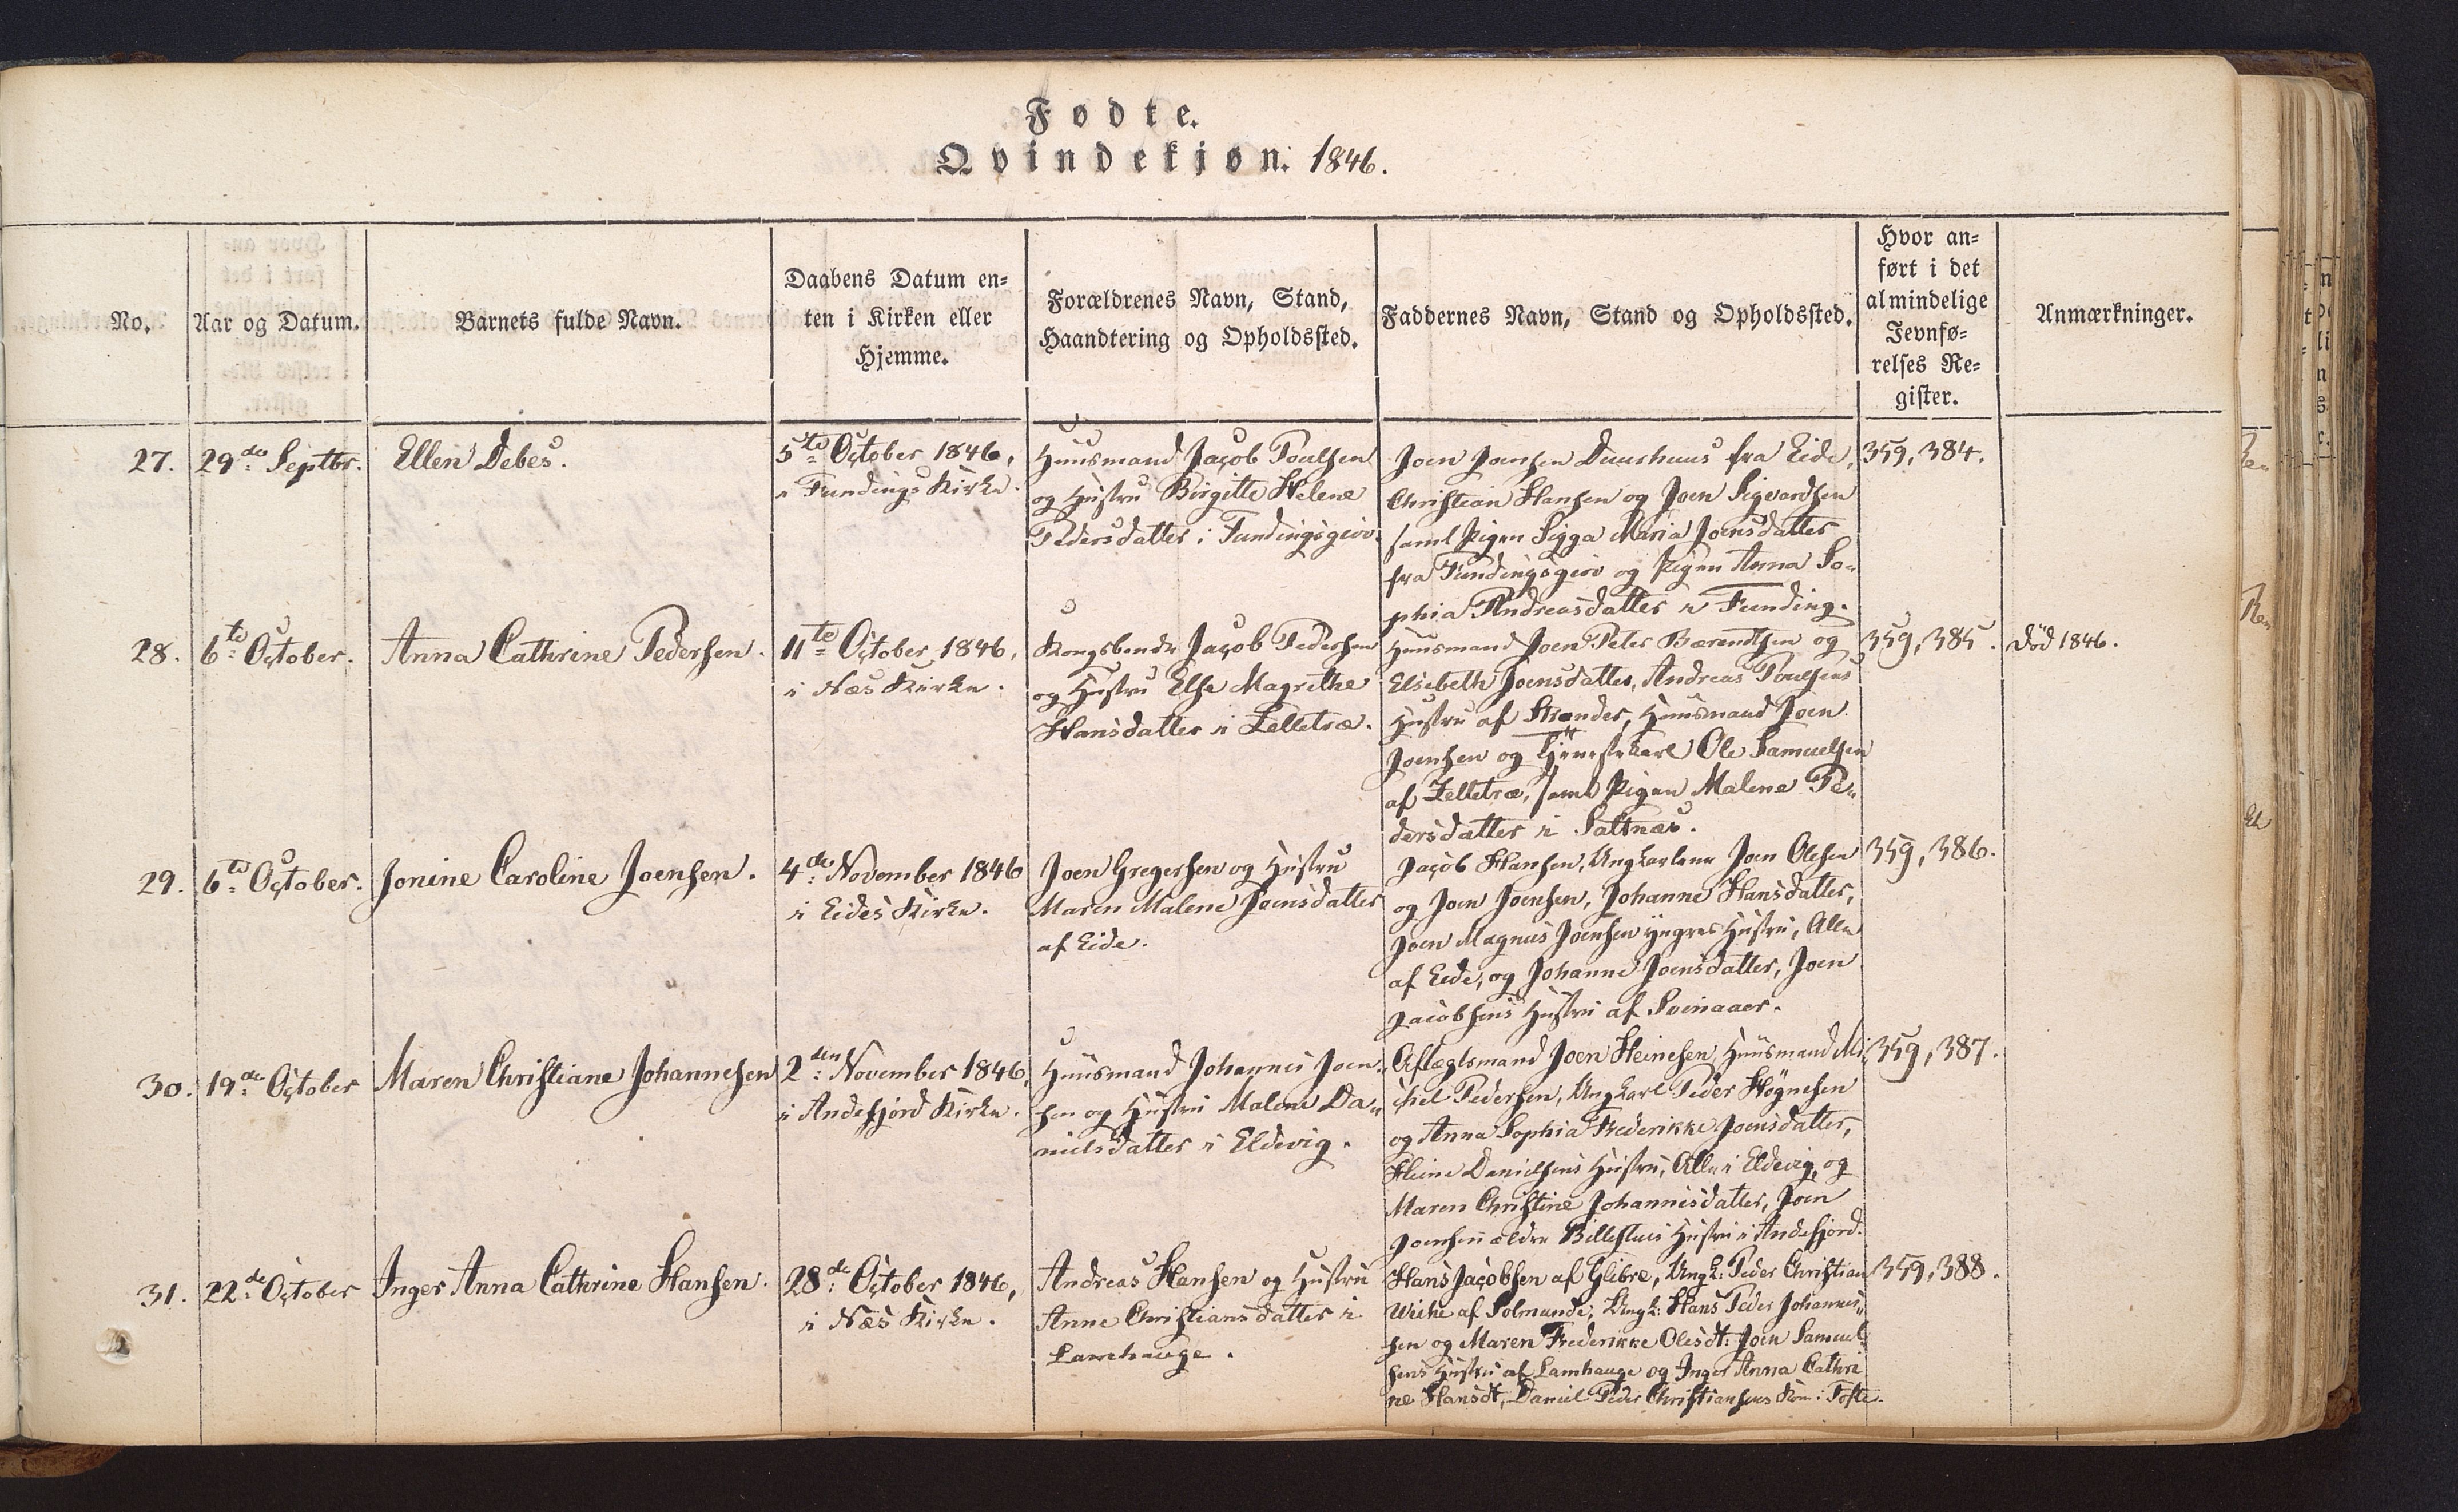 Fødte.
Qvindekjøn. 1846.
No.
Aar og Datum.
Barnets fulde Navn.
Daabens Datum en=
ten i Kirken eller
Hjemme.
Forældrenes Navn, Stand,
Haandtering og Opholdssted.
Faddernes Navn, Stand og Opholdssted.
Hvor an=
ført i det
almindelige
Jevnfø=
relses Re=
gister.
Anmærkninger.
27.
29de Septbr.
Ellen Debes.
5te October 1846,
i Fundings Kirke.
Huusmand Jacob Poulsen
og Hustru Birgitte Helene
Pedersdatter i Fundingsgiov.
Joen Joensen Duurhuus fra Eide,
Christian Hansen og Joen Sigvardsen
samt Pigen Sigga Maria Joensdatter
fra Fundingsgiov og Pigen Anna So=
phia Andreasdatter i Funding.
359, 384.
28.
6te October.
Anna Cathrine Pedersen.
11te October 1846,
i Næs Kirke.
Kongsbonde Jacob Pedersen
og Hustru Else Magrethe
Hansdatter i Selletræ.
Huusmand Joen Peter Bærendtsen og
Elsebeth Joensdatter, Andreas Poulsens
Hustru af Strender, Huusmand Joen
Joensen og Tjenestekarl Ole Samuelsen
af Selletræ, samt Pigen Malene Pe=
dersdatter i Saltnæs.
359, 385.
Död 1846.
29.
6te October.
Jonine Caroline Joensen.
4de November 1846
i Eides Kirke.
Joen Gregersen og Hustru
Maren Malene Joensdatter
af Eide.
Jacob Hansen, Ungkarlene Joen Olesen
og Joen Joensen, Johanne Hansdatter,
Joen Magnus Joensen yngres Hustru, Alle
af Eide, og Johanne Joensdatter, Joen
Jacobsens Hustru af Svinaaer.
359, 386.
30.
19de October
Maren Christiane Johannesen
2den November 1846,
i Andefjord Kirke.
Huusmand Johannes Joen=
sen og Hustru Malene Da=
nielsdatter i Eldevig.
Aftægtsmand Joen Heinesen, Huusmand Mi=
chel Pedersen, Ungkarl Peder Høgnesen
og Anna Sophia Frederikke Joensdatter,
Heine Danielsens Hustru, Alle i Eldevig, og
Maren Christine Johannesdatter, Joen
Joensen ældre Hustru i Andefjord.
359, 387.
31.
22de October
Inger Anna Cathrine Hansen.
28de October 1846,
i Næs Kirke.
Andreas Hansen og Hustru
Anne Christiansdatter i
Lamhauge.
Hans Jacobsen af Glibre, Ungk: Peder Christian
Weihe af Solmunde, Ungk: Hans Peder Johannes=
sen og Maren Frederikke Olesdt: Joen Samuel=
sens Hustru af Lamhauge og Inger Anna Cathri
ne Hansdt, Daniel Peder Christiansens Kone i Tofte.
359, 388.